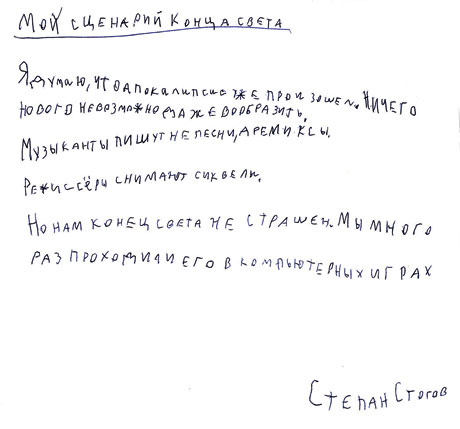 Мой сценарий конца света
Я думаю, что апокалипсис уже произошел. Ничего
нового невозможно даже вообразить.
Музыканты пишут не песни, а ремиксы.
Режиссёры снимают сиквелы.
Но нам конец света не страшен. Мы много
раз проходили его в компьютерных играх
Степан Стогов